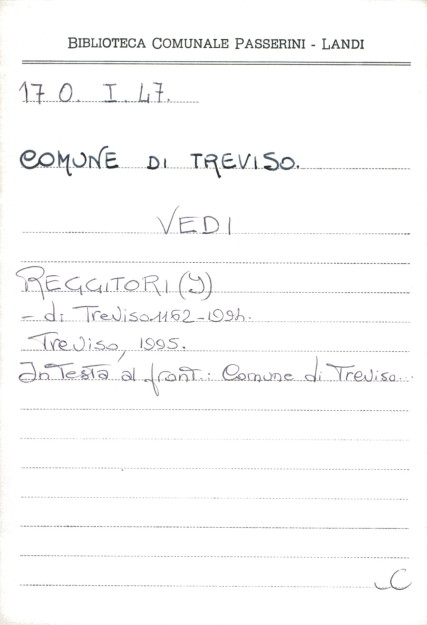 BIBLIOTECA COMUNALE PASSERINI - LANDI
17 O. I. 47.
COMUNE DI TREVISO.
VEDI
REGGITORI (I)
- di Treviso 1162-1994.
Treviso, 1995.
In testa al front.: Comune di Treviso.
C